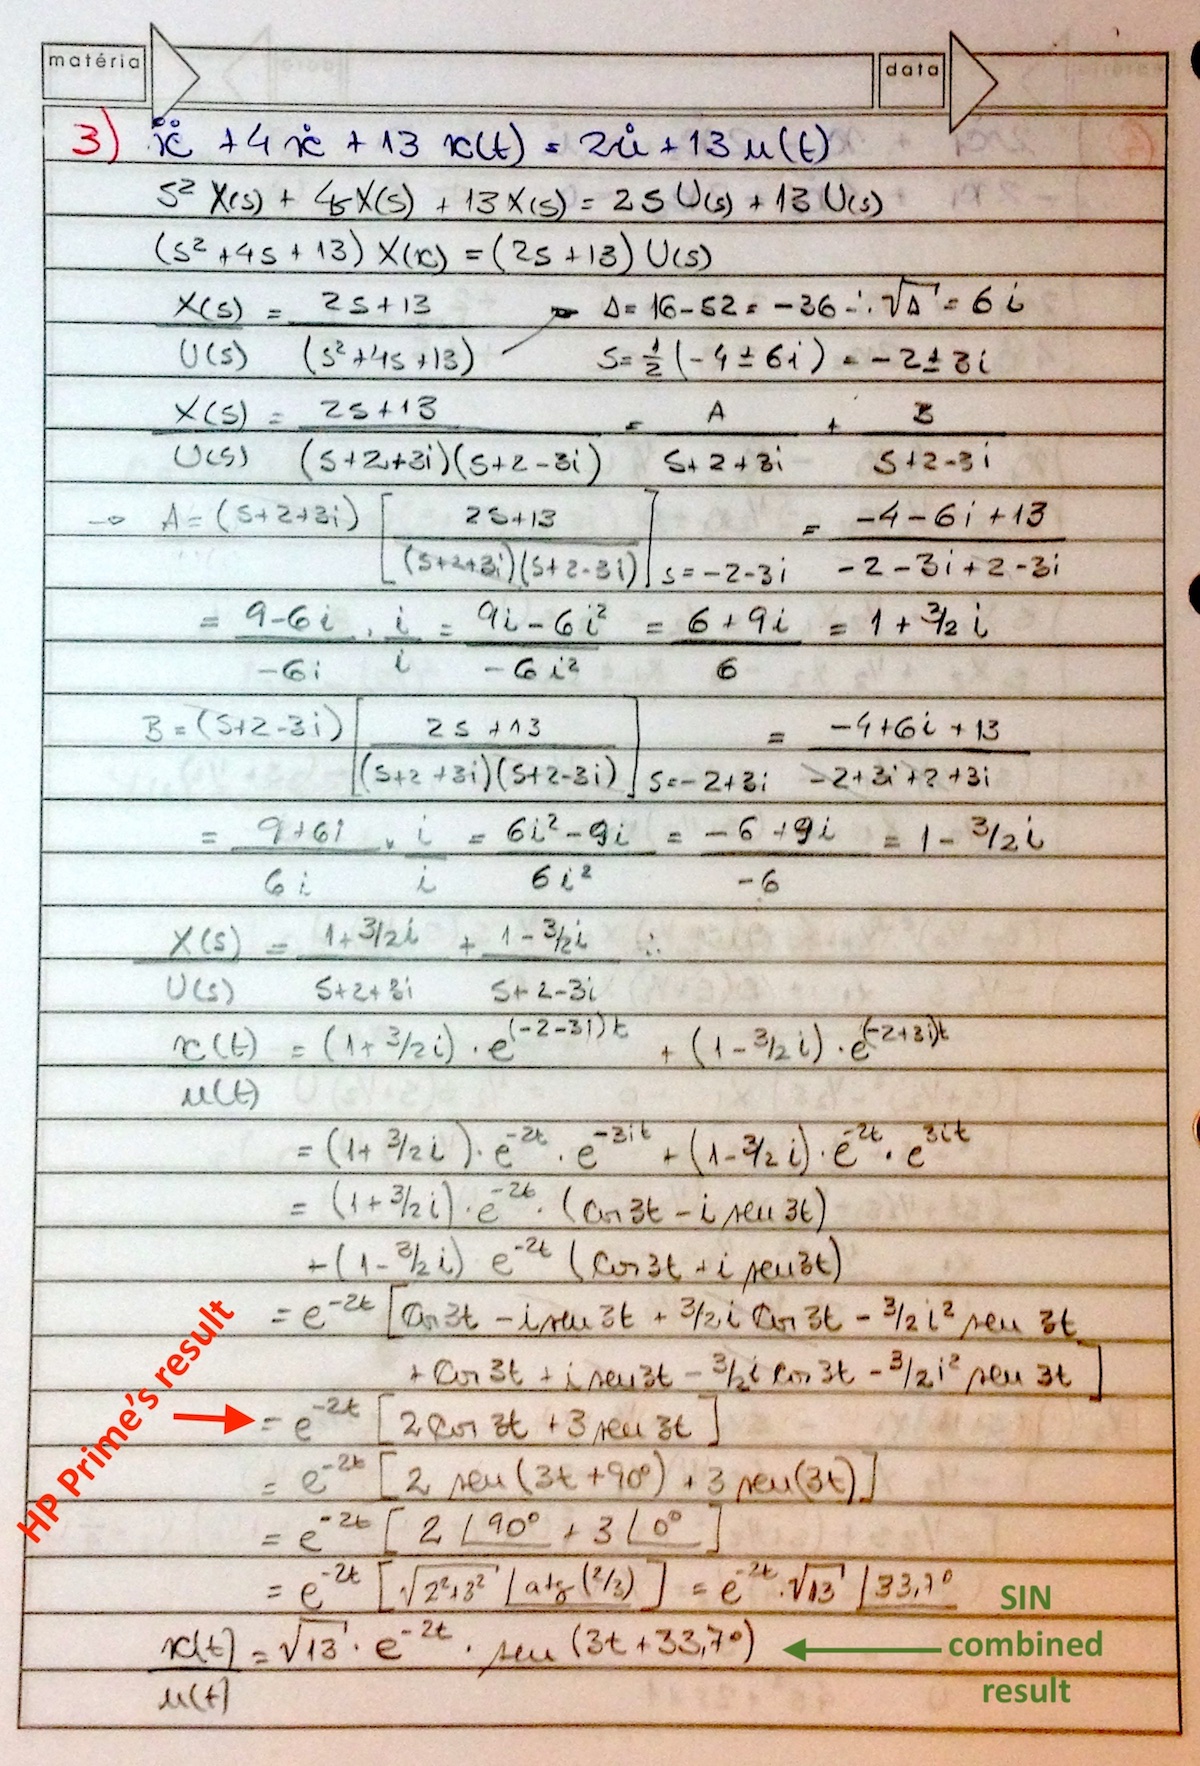 matéria data
3) ẍ + 4ẋ + 13 x(t) = 2u̇ + 13 u(t)
s² X(s) + 4sX(s) + 13X(s) = 2S U(s) + 13 U(s)
(s² + 4s + 13) X(x) = (2s + 13) U(s)
X(s)/U(s) = 2s+13/(s²+4s+13) → Δ = 16 - 52 = -36 ∴ √Δ = 6i
S = 1/2 (-4 ± 6i) = -2 ± 3i
X(s)/U(s) = 2s+13/(s+2+3i)(s+2-3i) = A/s+2+3i + B/s+2-3i
→ A = (s+2+3i) [2s+13/(s+2+3i)(s+2-3i)] s=-2-3i = -4-6i+13/-2-3i+2-3i
= 9-6i/-6i . i/i = 9i-6i²/-6i² = 6+9i/6 = 1 + 3/2 i
B = (s+2-3i) [2s+13/(s+2+3i)(s+2-3i)] s=-2+3i = -4+6i+13/-2+3i+2+3i
= 9+6i/6i . i/i = 6i²-9i/6i² = -6+9i/-6 = 1 - 3/2 i
X(s)/U(s) = 1+3/2i/s+2+3i + 1-3/2i/s+2-3i ∴
x(t)/u(t) = (1+3/2i) · e^(-2-3i)t + (1-3/2i) · e^(-2+3i)t
= (1+3/2i) · e^-2t · e^-3it + (1-3/2i) · e^-2t · e^3it
= (1+3/2i) · e^-2t · (cos 3t - i sen 3t)
+ (1-3/2i) e^-2t (cos 3t + i sen 3t)
= e^-2t [cos 3t - i sen 3t + 3/2 i cos 3t - 3/2 i² sen 3t
+ cos 3t + i sen 3t - 3/2 i cos 3t - 3/2 i² sen 3t]
HP Prime's result
= e^-2t [2 cos 3t + 3 sen 3t]
= e^-2t [2 sen (3t + 90°) + 3 sen(3t)]
= e^-2t [2 ∠90° + 3 ∠0°]
= e^-2t [√2²+3² ∠atg(2/3)] = e^-2t · √13 ∠33,7°
x(t)/u(t) = √13 · e^-2t · sen (3t + 33,7°)
SIN
combined
result